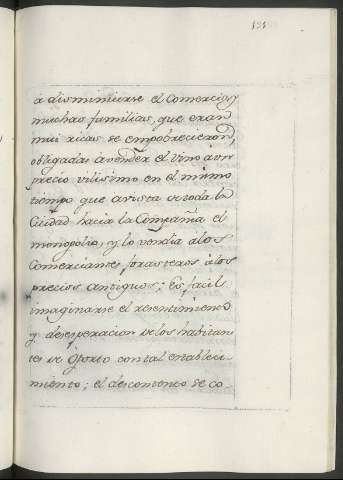 191
á disminuirse el Comercio, y
muchas familias, que eran
mui ricas se empobrecieron,
obligadas á vender el Vino á un
precio vilisimo en el mismo
tiempo que á vista de toda la
Ciudad hacia la Compañia el
monopolio, y lo vendia á los
Comerciantes forasteros á los
precios antiguos; Es facil
imaginarse el resentimiento
y desesperacion de los habitan
tes de Oporto con tal estableci-
miento; el descontento se co-